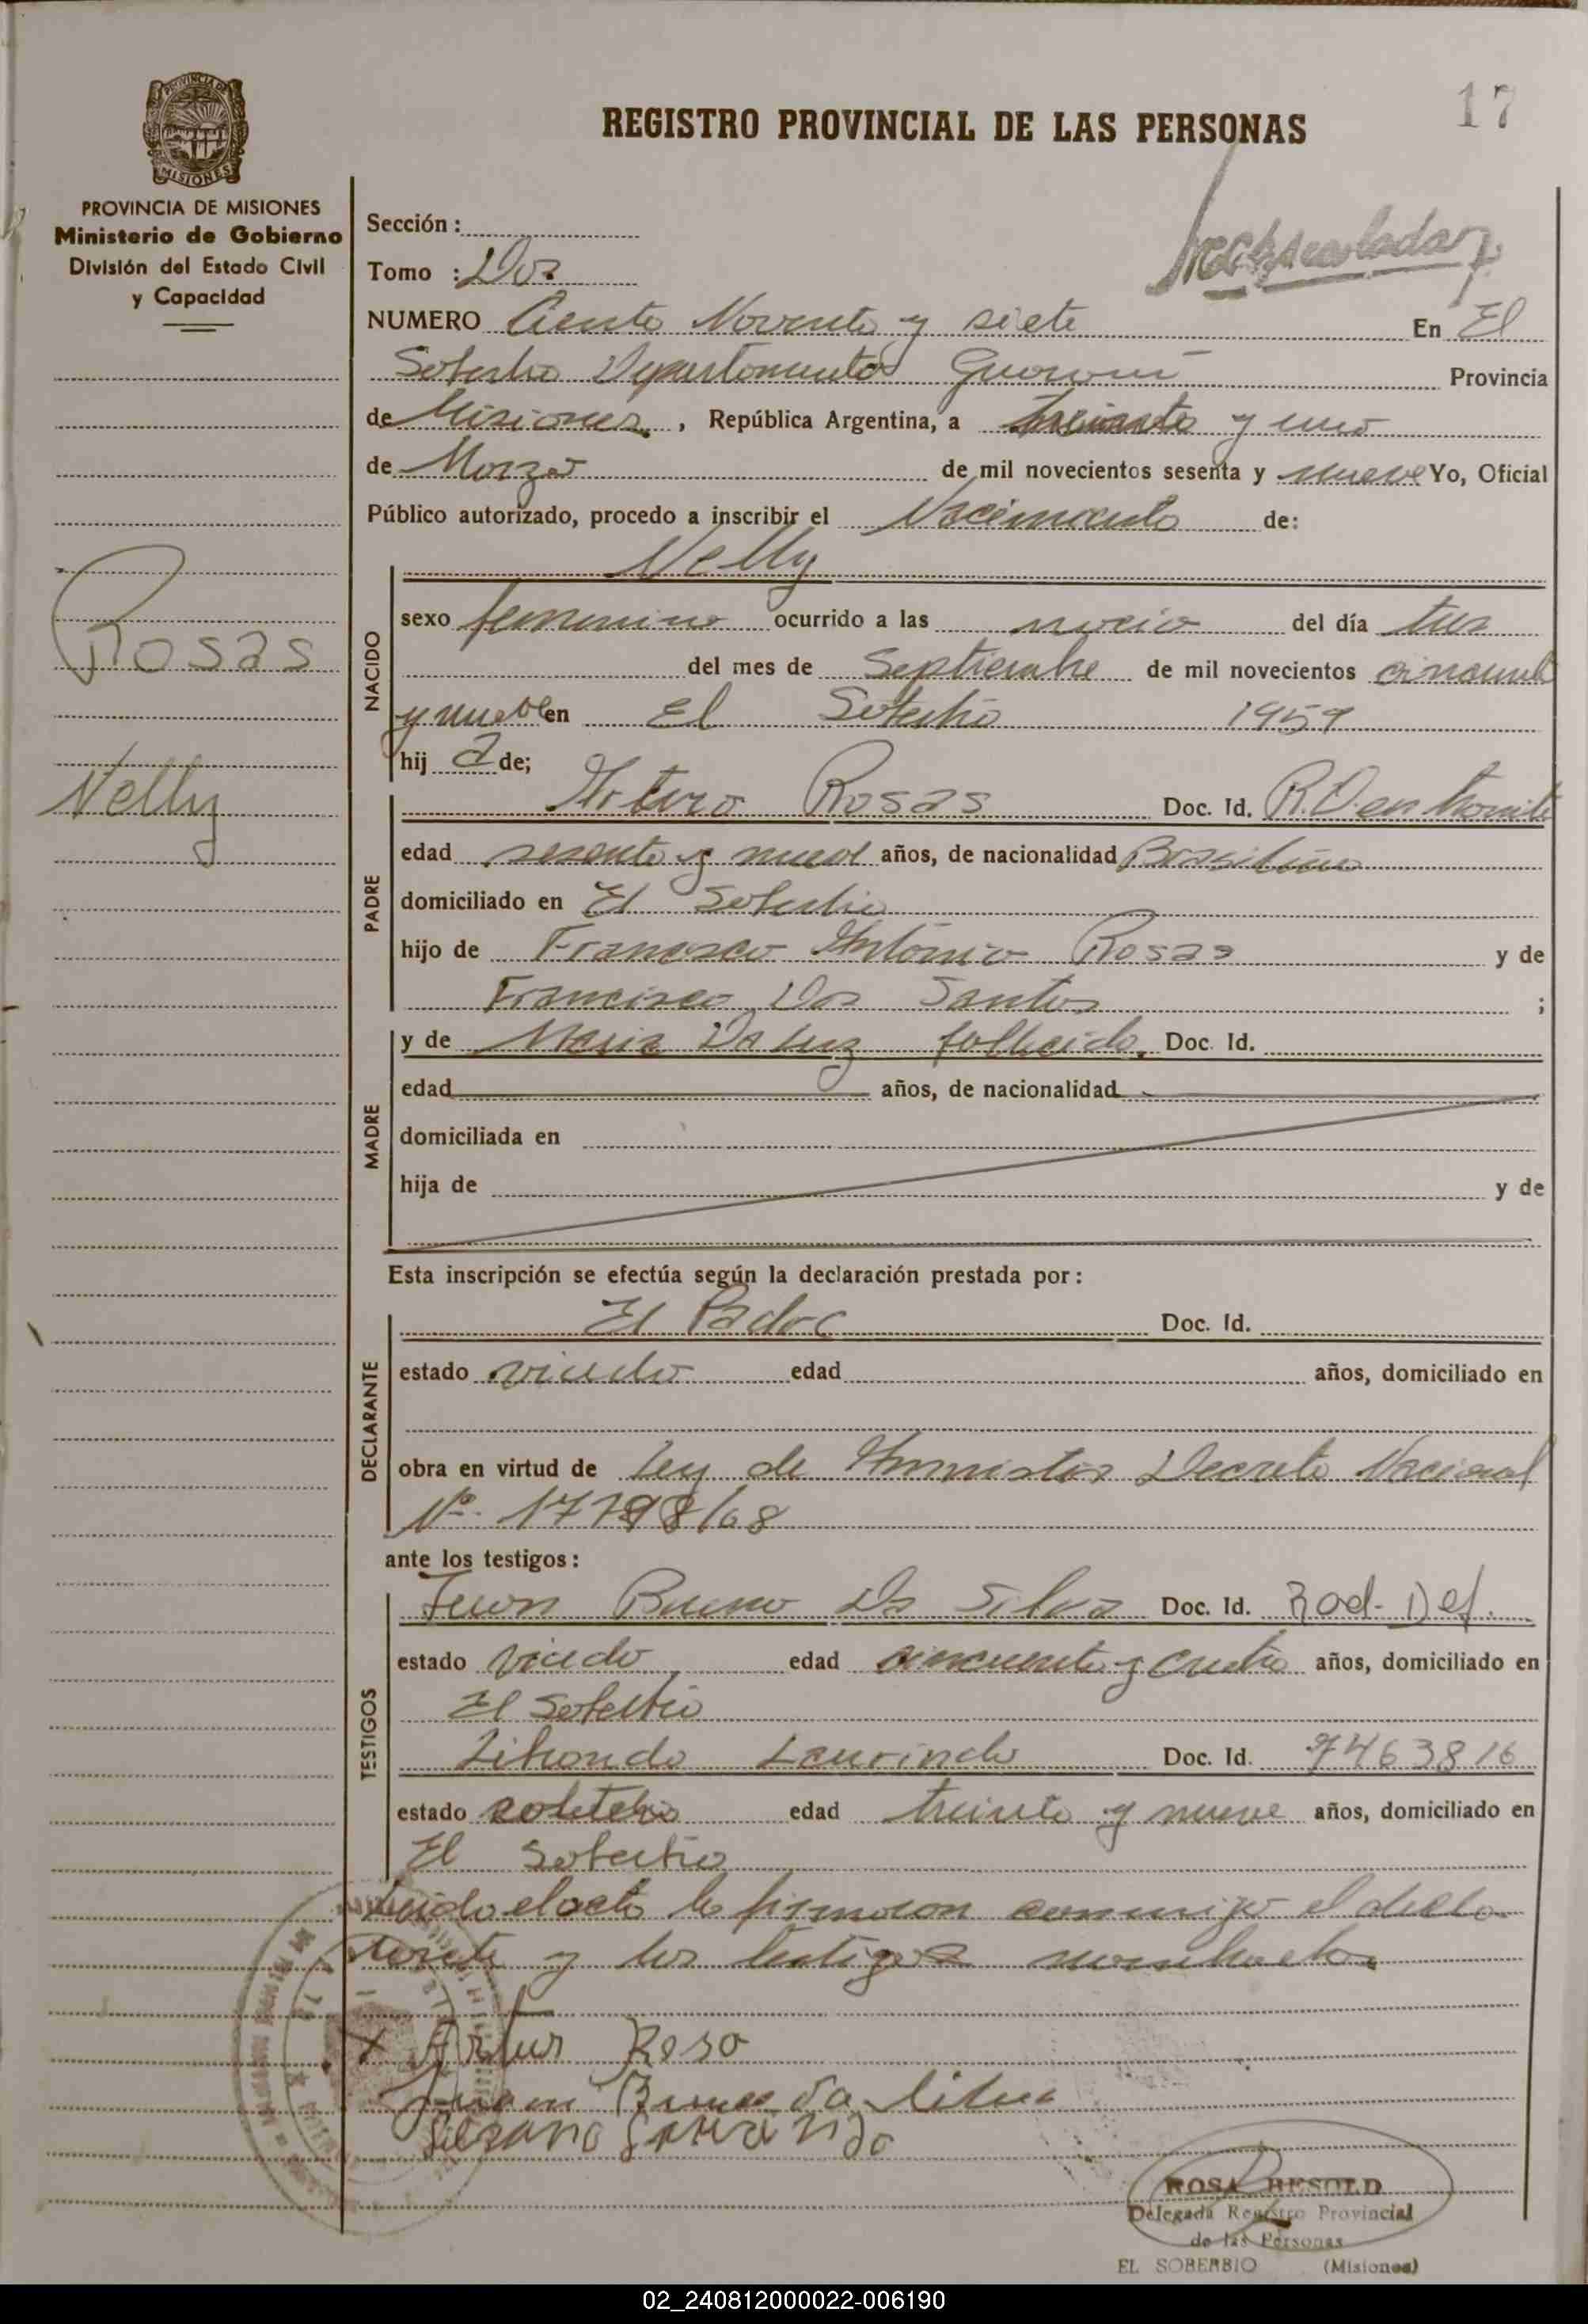 17
REGISTRO PROVINCIAL DE LAS PERSONAS
PROVINCIA DE MISIONES
MISIONES
PROVINCIA DE MISIONES
Ministerio de Gobierno
División del Estado Civil
y Capacidad
Rosas
Nelly
Sección :
Tomo : Dos
NUMERO Ciento Noventa y siete En El
Soberbio Departamento Guarani Provincia
de Misiones , República Argentina, a treinta y uno
de Marzo de mil novecientos sesenta y nueve Yo, Oficial
Público autorizado, procedo a inscribir el Nacimiento de:
NACIDO
Nelly
sexo femenino ocurrido a las del día tres
del mes de Septiembre de mil novecientos cincuenta
y nueve en El Soberbio 1959
hij a de;
PADRE
Arturo Rosas Doc. Id. R.D. en tramite
edad sesenta y nueve años, de nacionalidad Brasilera
domiciliado en El Soberbio
hijo de Francisco Antonio Rosas y de
Francisca Dos Santos ;
MADRE
y de Maria Da Luz fallecida, Doc. Id.
edad años, de nacionalidad
domiciliada en
hija de y de
Esta inscripción se efectúa según la declaración prestada por :
DECLARANTE
El Padre Doc. Id.
estado viudo edad años, domiciliado en
obra en virtud de Ley de Amnistia Decreto Nacional
Nº. 17798/68
ante los testigos :
TESTIGOS
Juan Bueno Da Silva Doc. Id.
estado viudo edad cincuenta y cuatro años, domiciliado en
El Soberbio
Laurindo Doc. Id. 7463816
estado soltero edad treinta y nueve años, domiciliado en
El Soberbio
Leido el acto la firmaron conmigo el decla-
rante y los testigos nombrados
x Artur Roso
Juam Bueno da Silva
ROSA BESOLD
Delegada Registro Provincial
de las Personas
EL SOBERBIO (Misiones)
02_240812000022-006190